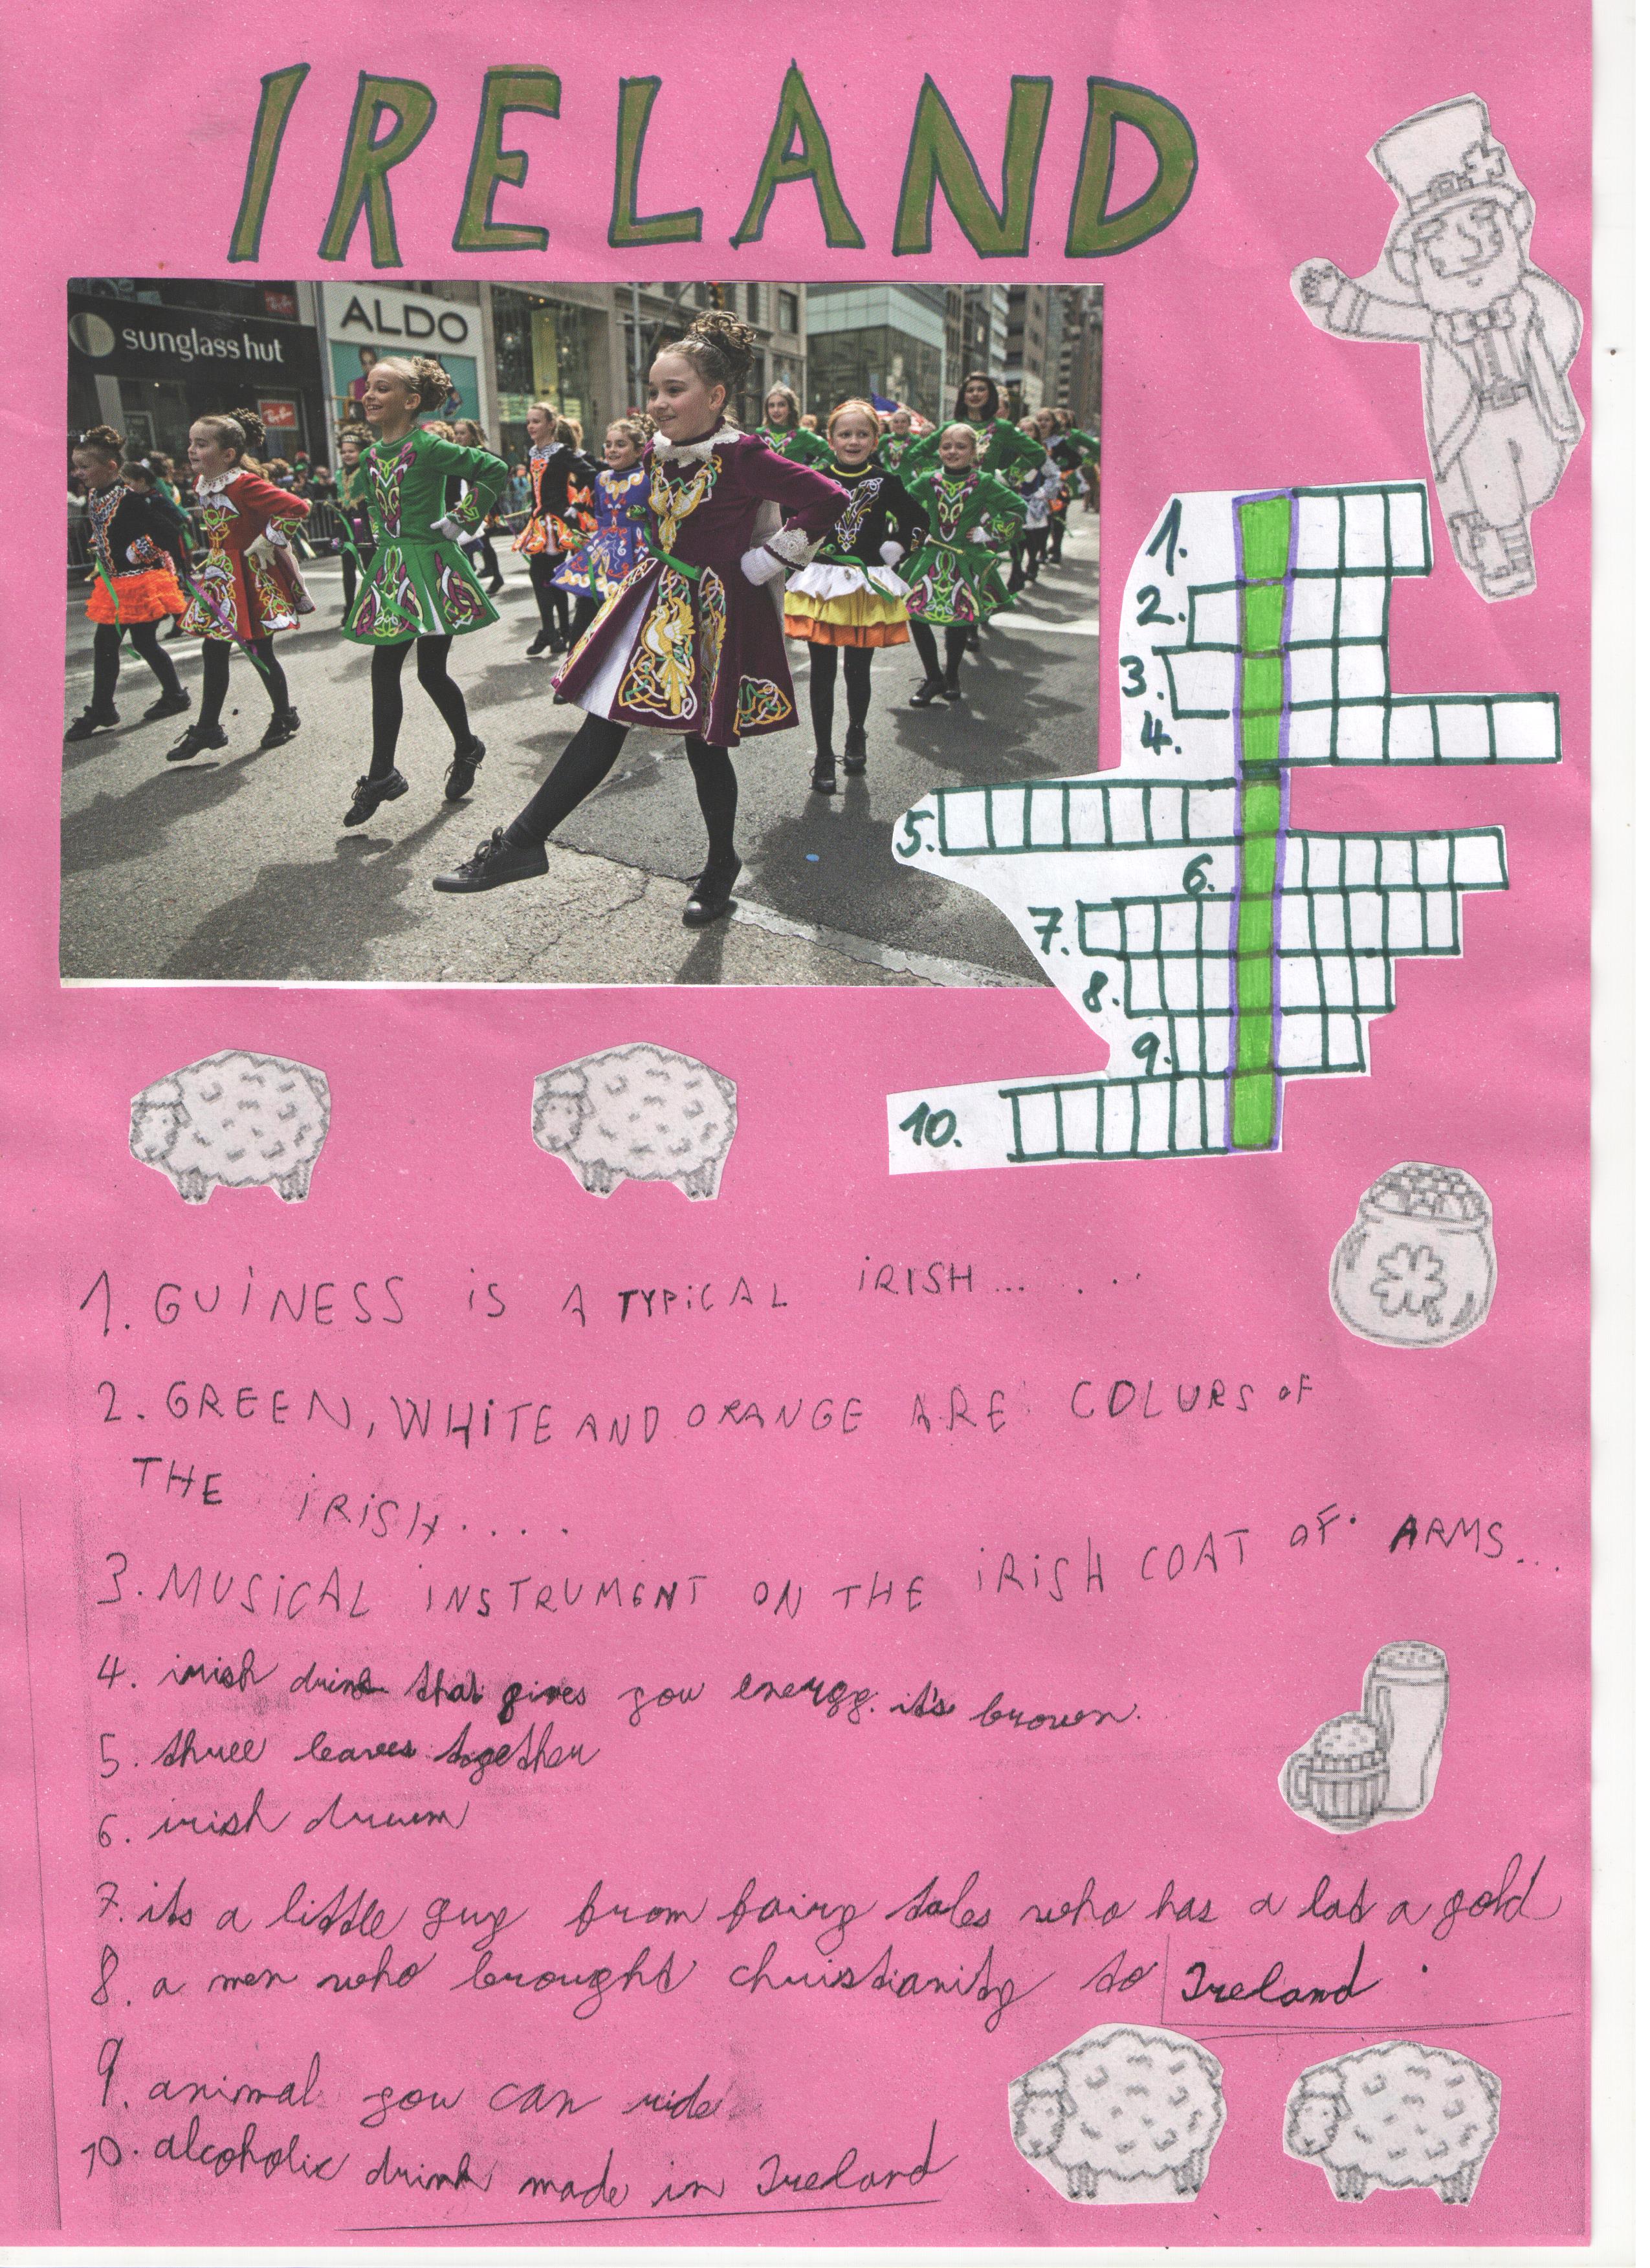 IRELAND
sunglass hut
ALDO
Ray-Ban
Ray-Ban
1.
2.
3.
4.
5.
6.
7.
8.
9.
10.
1. GUINESS IS A TYPICAL IRISH... . ...
2. GREEN, WHITE AND ORANGE ARE COLURS OF
THE IRISH....
3. MUSICAL INSTRUMENT ON THE IRISH COAT OF ARMS...
4. irish drink that gives you energy. it's brown.
5. three leaves together
6. irish drum
7. its a little guy from fairy tales who has a lot a gold
8. a men who brought christianity to Ireland
9. animal you can ride
10. alcoholic drink made in Ireland